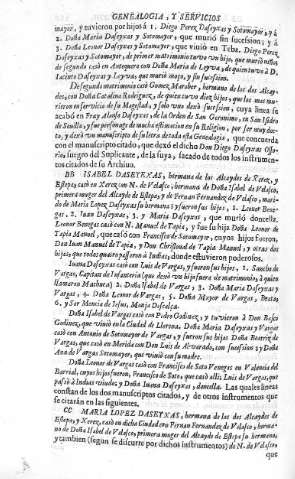 GENEALOGIA, Y SERVICIOS
mayor, y tuvieron por hijos á 1. Diego Perez Daseyxas y Sotomayor, y á
2. Doña Maria Daseyxas y Sotomayor, que murió sin sucession; y á
3. Doña Leonor Daseyxas y Sotomayor, que vivió en Teba. Diego Perez
Daseyxas y Sotomayor, de primer matrimonio tuvo vn hijo, que murió niño,
de segundo casó en Antequera con Doña Maria de Leyva, de quien tuvo á D.
Jacinto Daseyxas y Leyva, que murió moço, y sin sucession.
De segundo matrimonio casó Gomez, Barahor, hermano de los dos Alcaydes,
con Doña Catalina Rodriguez, de quien tuvo diez hijos, que los mas murieron
en servicio de su Magestad, y solo vno dexó sucession, cuya linea se
acabó en Fray Alonso Daseyxas, de la Orden de San Geronimo, en San Isidro
de Sevilla, y fue personage de mucha estimacion en su Religion, por ser muy docto,
y dexó vn manuscripto de su letra de toda esta Genealogia, que concuerda
con el manuscripto citado, que dexó el dicho Don Diego Daseyxas Ossorio,
suegro del Suplicante, de la suya, sacado de todos los instrumentos
citados de su Archivo.
BB ISABEL DASEYXAS, hermana de los Alcaydes de Xerez, y
Estepa, casó en Xerez con N. de Velasco, hermano de Doña Isabel de Velasco,
primera muger del Alcayde de Estepa, y de Fernan Fernandez de Velasco, marido
de Maria Lopez Daseyxas su hermana; y fueron sus hijos, 1. Leonor Benegas,
2. Juan Daseyxas, 3. y Maria Daseyxas, que murió doncella.
Leonor Benegas casó con N. Manuel de Tapia, y fue su hija Doña Leonor de
Tapia Manuel, que casó con Francisco de Sotomayor, cuyos hijos fueron,
Don Juan Manuel de Tapia, y Don Christoval de Tapia Manuel, y otras dos
hijas, que todos quatro passaron á Indias, donde estuvieron poderosos.
Juana Daseyxas casó con Luis de Vargas, y fueron sus hijos, 1. Sancho de
Vargas, Capitan de Infanteria (que dexó vn hijo fuera de matrimonio, á quien
Homara Machuca) 2. Doña Isabel de Vargas, 3. Doña Maria Daseyxas y
Vargas, 4. Doña Leonor de Vargas, 5. Doña Mayor de Vargas, Beata,
6. y Sor Mencia de Jesus, Monja Descalça.
Doña Isabel de Vargas casó con Pedro Godinez, y tuvieron á Don Roses
Godinez, que vivió en la Ciudad de Llerena. Doña Maria Daseyxas y Vargas
casó con Antonio de Sotomayor de Vargas, y fueron sus hijas Doña Beatriz de
Vargas, que casó en Merida con Don Luis de Alvarado, con sucession; y Doña
Ana de Vargas Sotomayor, que vivió con su madre.
Doña Leonor de Vargas casó con Francisco de Soto Venegas en Valencia del
Barrial, cuyos hijos fueron, Francisco de Soto, que casó allí; Luis de Vargas, que
passó á Indias viudo; y Doña Juana Daseyxas, doncella. Las quales lineas
constan de los dos manuscriptos citados, y de otros instrumentos que
se citarán en las siguientes.
CC MARIA LOPEZ DASEYXAS, hermana de los dos Alcaydes de
Estepa, y Xerez, casó en dicha Ciudad con Fernan Fernandez de Velasco, hermano
de Doña Isabel de Velasco, primera muger del Alcayde de Estepa su hermano,
y tambien (segun se discurre por dichos instrumentos) de N. de Velasco,
que